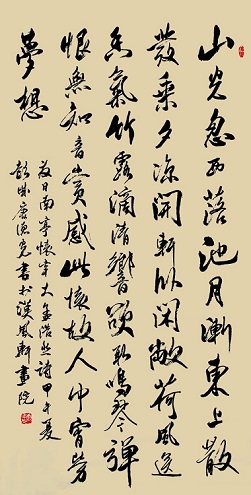 山光忽西落池月漸東上散
發乘夕涼開軒臥閑敞荷風送
香氣竹露滴清響欲取鳴琴彈
恨無知音賞感此懷故人中宵勞
夢想
夏日南亭懷辛大孟浩然詩甲午夏
彭城唐書於漢風軒畫院